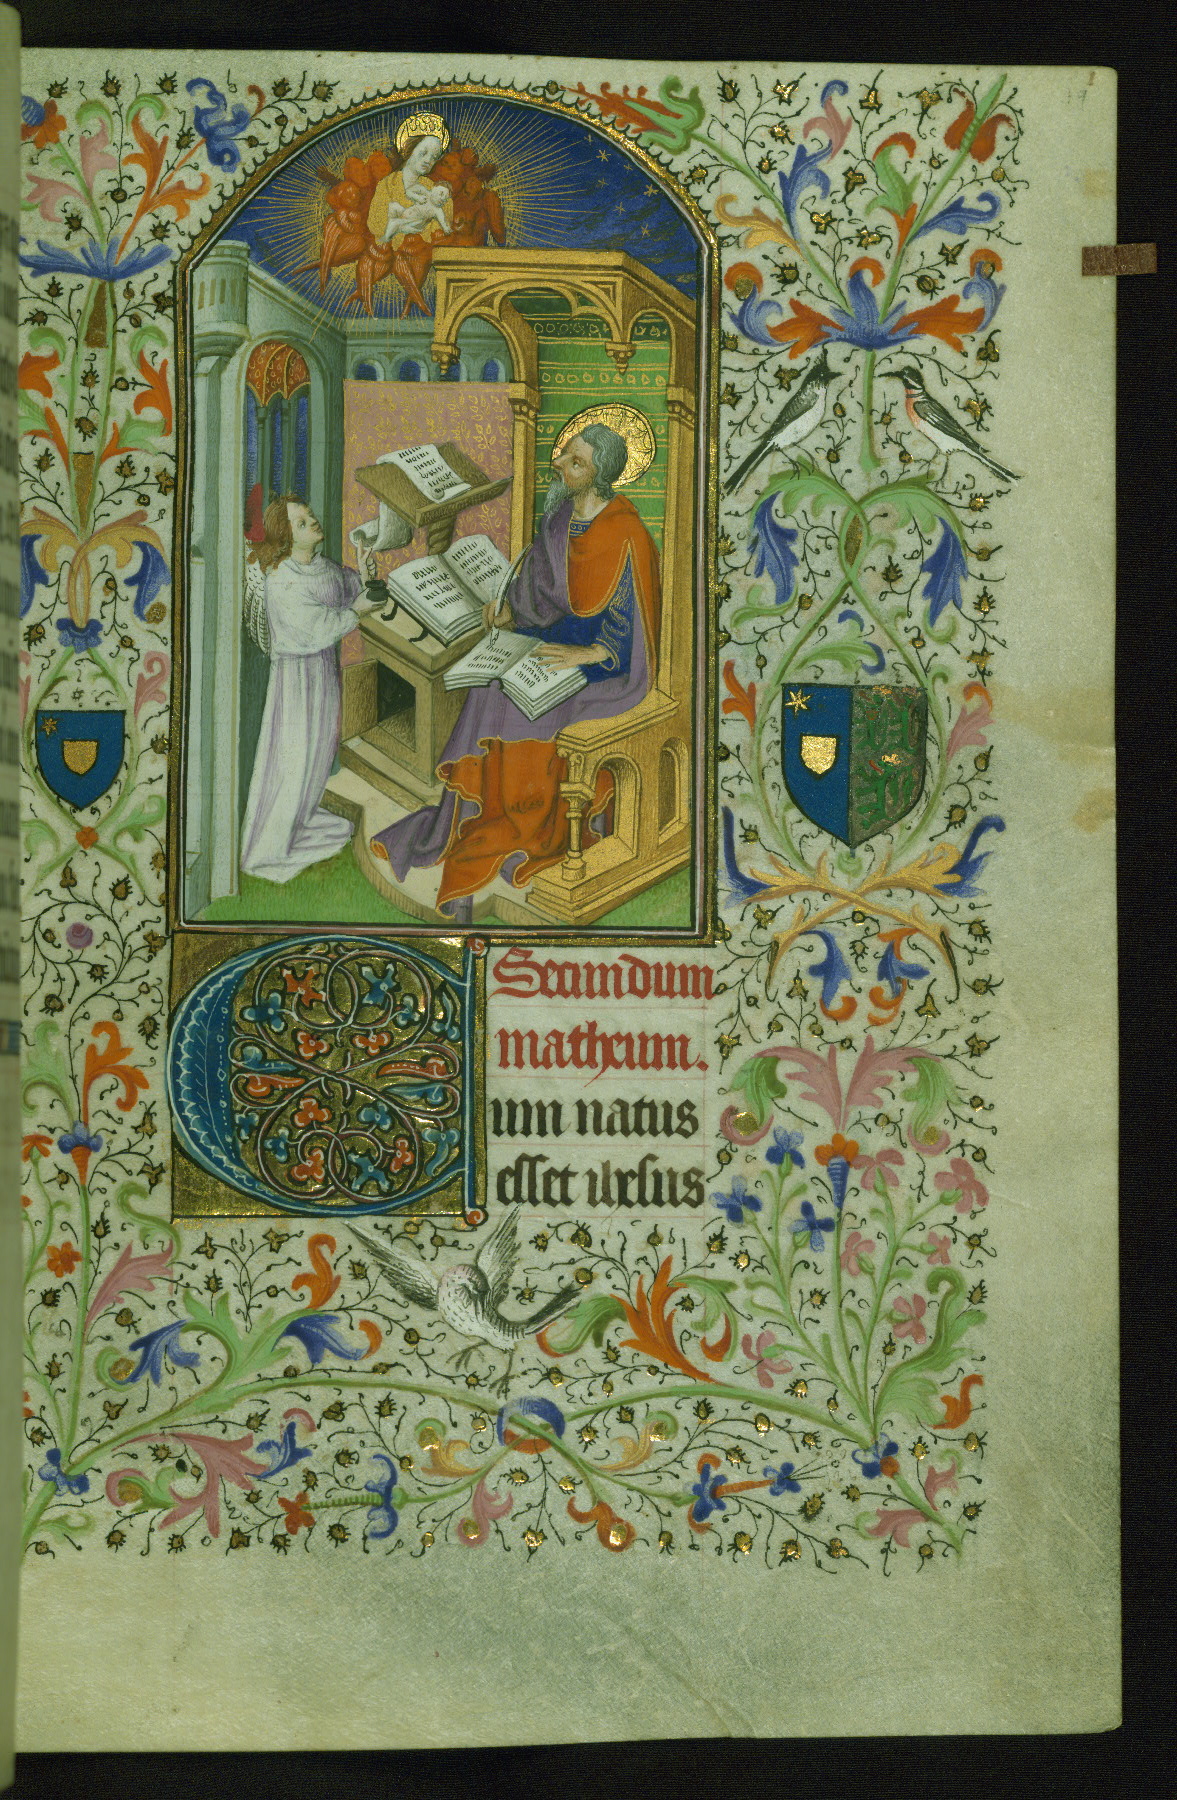 Secundum
matheum.
um natus
esset ihesus